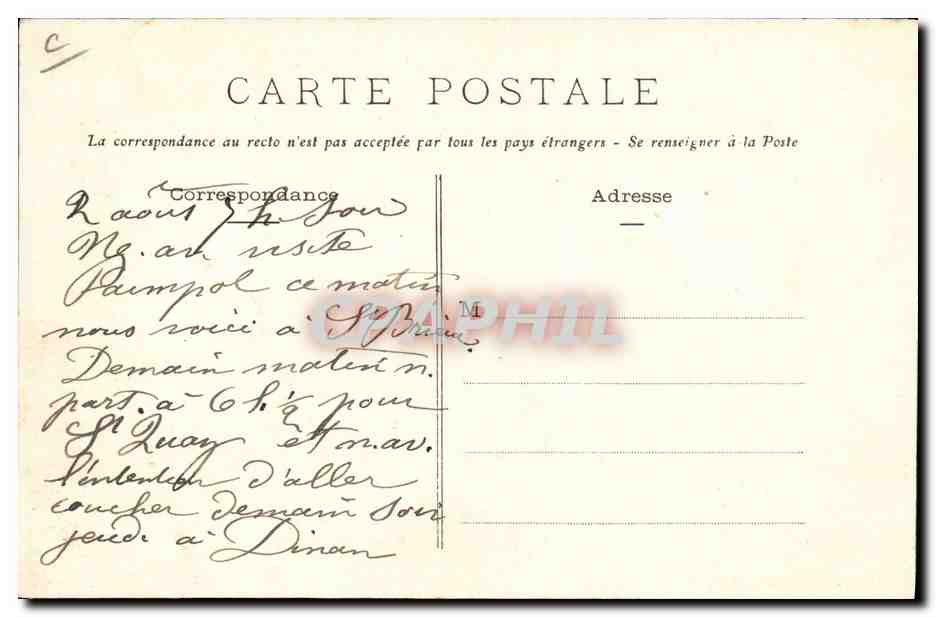 C
CARTE POSTALE
La correspondance au recto n'est pas acceptée par tous les pays étrangers - Se renseigner à la Poste
Correspondance
Adresse
2 août 7 h. soir
Paimpol ce matin
nous voici à St Brieuc.
Demain matin n.
part. à 6 h. 1/2 pour
St Quay et n. av.
l'intention d'aller
coucher demain soir
jeudi à Dinan
M
CPAPHIL